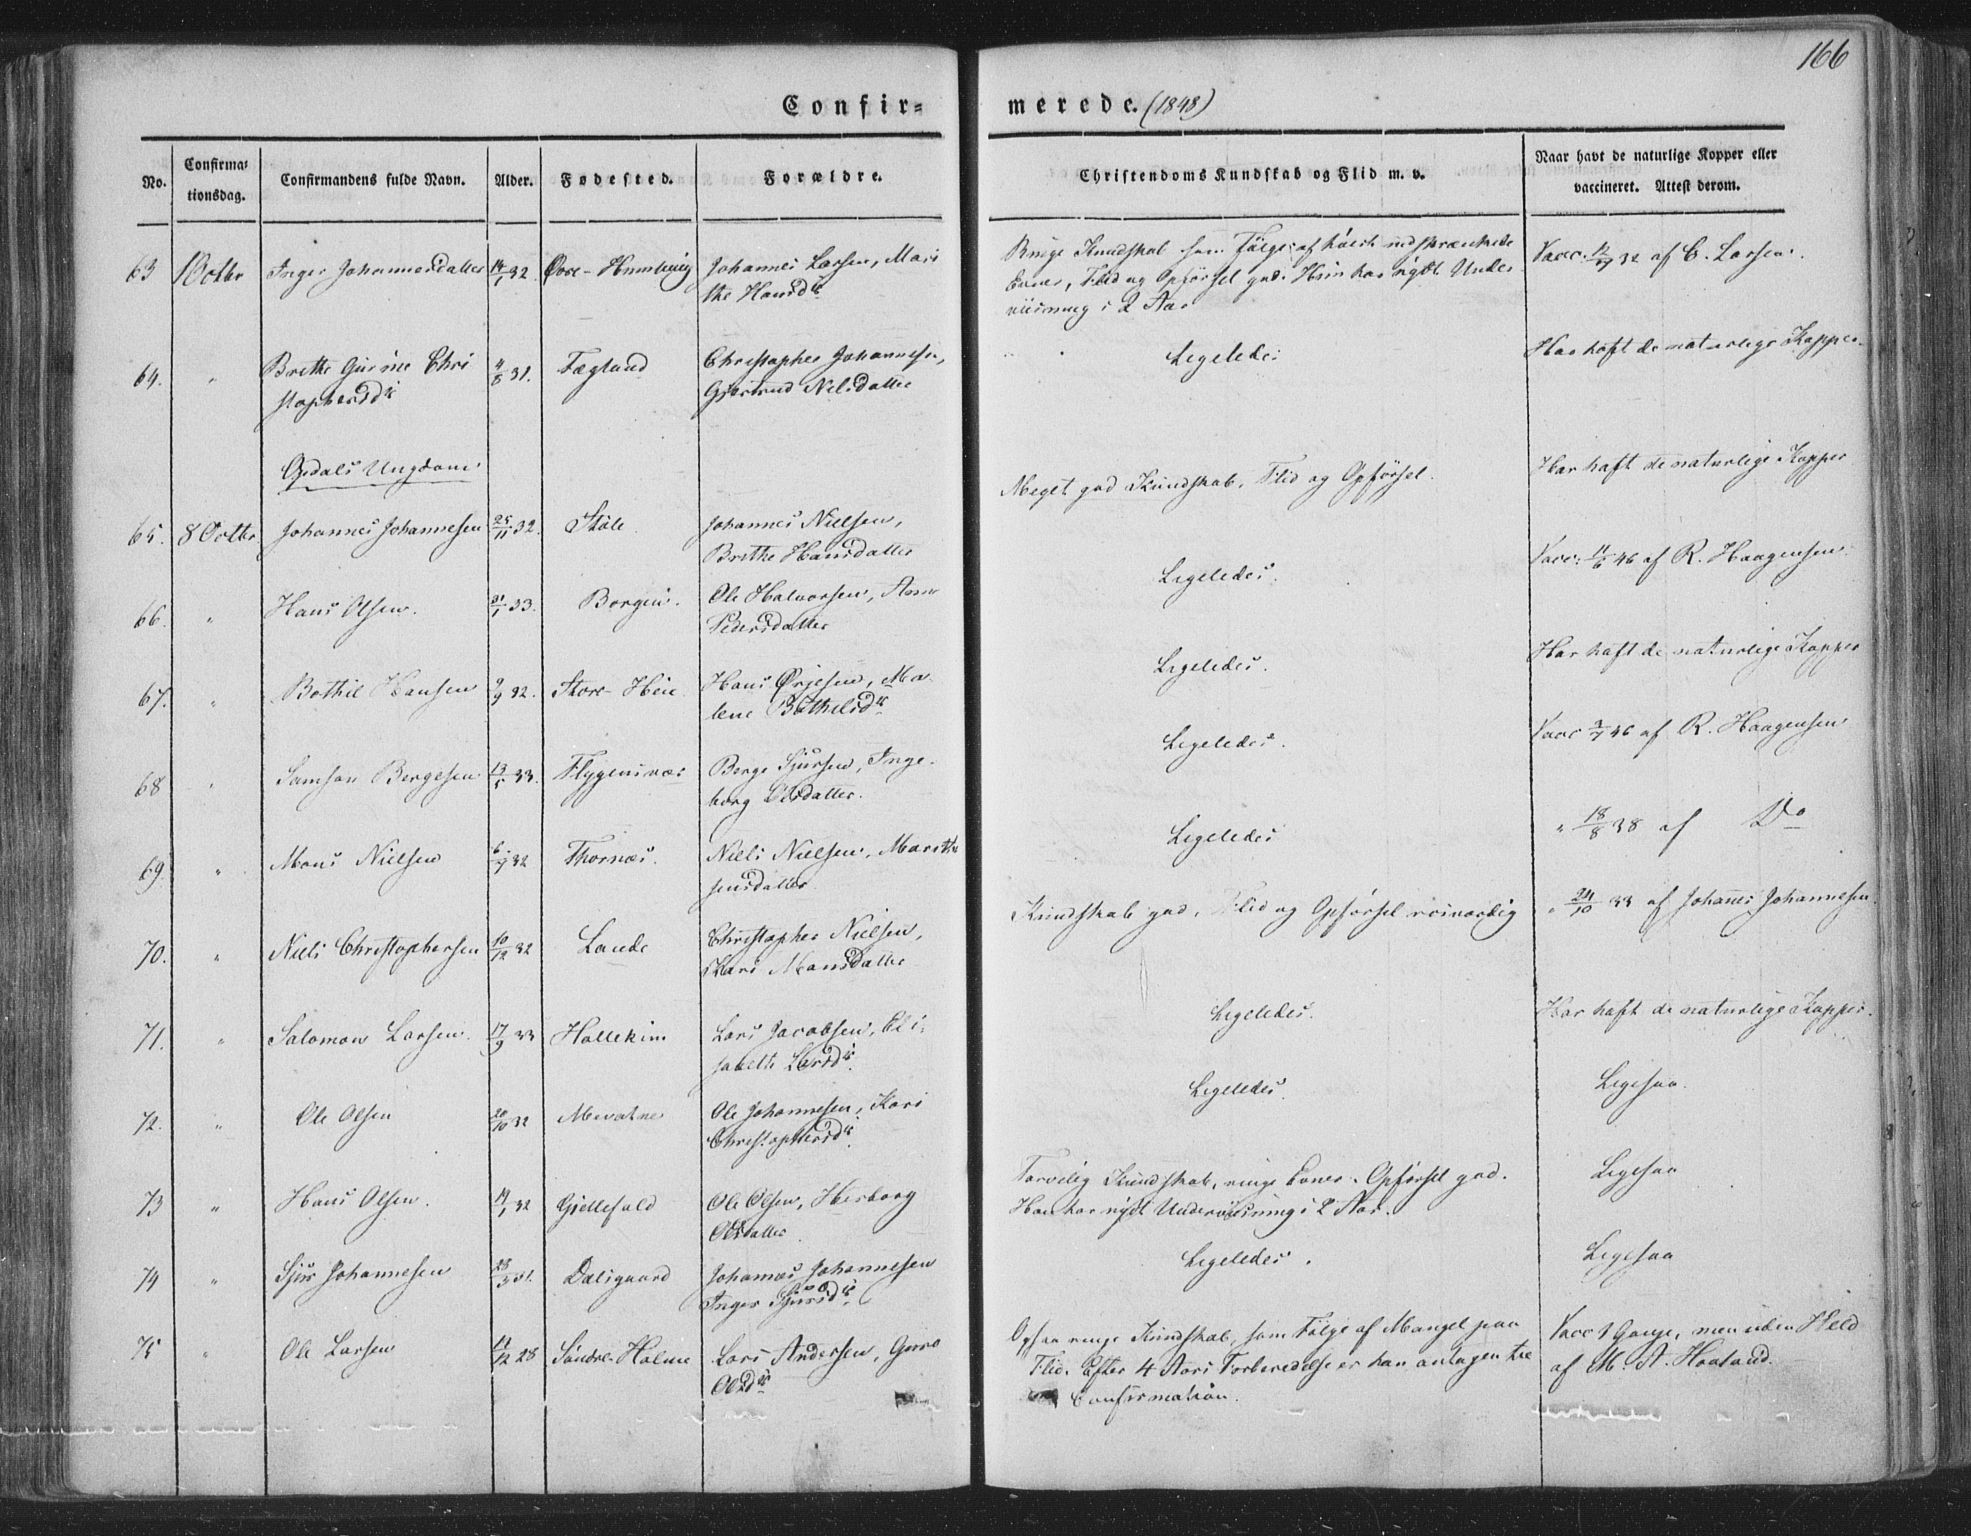 166
Confir- merede. (1848)
No. Confirma- tionsdag. Confirmandens fulde Navn. Alder. Fødested. Forældre. Christendoms Kundskab og Flid m. v. Naar havt de naturlige Kopper eller vaccineret. Attest derom.
63 1 Octbr Inger Johannesdatter 14/1 32. Øvre- Johannes Larsen, Mari
the Hansdr
Ringe Kundskab som Følge af høist indskrænkede
Evner, Flid og Opførsel god. Hun har nydt Under
viisning i 2 Aar
Vacc. 12/9 32 af C. Larsen.
64. " Brithe Gurine Chri 4/8 31. Fægland Christopher Johannesen,
stophersdr Gjertrud Nilsdatter
Ligeledes
Har haft de naturlige Kopper.
Opdals Ungdom
65. 8 Octbr Johannes Johannesen 25/11 32. Støle Johannes Nielsen,
Brithe Hansdatter
Meget god Kundskab, Flid og Opførsel.
Har haft de naturlige Kopper
66. " Hans Olsen. 21/1 33. Borgen. Ole Halvorsen, Anne
Pedersdatter
Ligeledes.
Vacc: 11/6 46 af R. Haagensen
67. " Bothil Hansen 9/9 32. Store- Hans Ørjesen, Ma
lene Bothilsdr
Ligeledes.
Har haft de naturlige Kopper
68 " Samson Bergesen 13/5 33. Flygensvær Berge Sjursen, Inge-
borg Olsdatter.
Ligeledes.
Vacc 3/7 46 af R. Haagensen
69. " Mons Nielsen 6/7 32 Thornæs. Niels Nielsen, Marithe
Jensdatter
Ligeledes
" 18/8 38 af Do
70. " Niels Christophersen 10/12 32 Lande Christopher Nielsen,
Kari Monsdatter
Kundskab god, Flid og Opførsel roisværdig
" 24/10 33 af Johanes Johannesen.
71. " Salomon Larsen. 17/9 33 Hollekim Lars Jacobsen, Eli-
sabeth Larsdr.
Ligeledes.
Har haft de naturlige Kopper.
72. " Ole Olsen 20/10 32 Mevatne Ole Johannesen, Kari
Christophersdr.
Ligeledes.
Ligesaa.
73 " Hans Olsen. 14/1 32 Gjellefald Ole Olsen, Herborg
Olsdatter
Tarvelig Kundskab, ringe Evner. Opførsel god.
Han har nydt Underviisning i 2 Aar.
Ligesaa
74 " Sjur Johannesen 28/3 31. Dalsgaard Johannes Johannesen
Inger Sjursdr.
Ligeledes.
Ligesaa
75 " Ole Larsen 14/12 28 Søndre- Holme Lars Andersen, Guro
Olsdr
Ogsaa ringe Kundskab, som Følge af Mangel paa
Flid. Efter 4 Aars Forberedelse er han antagen til
Confirmation.
Vacc 1 Gang, men uden Held
af M. A. Haaland.